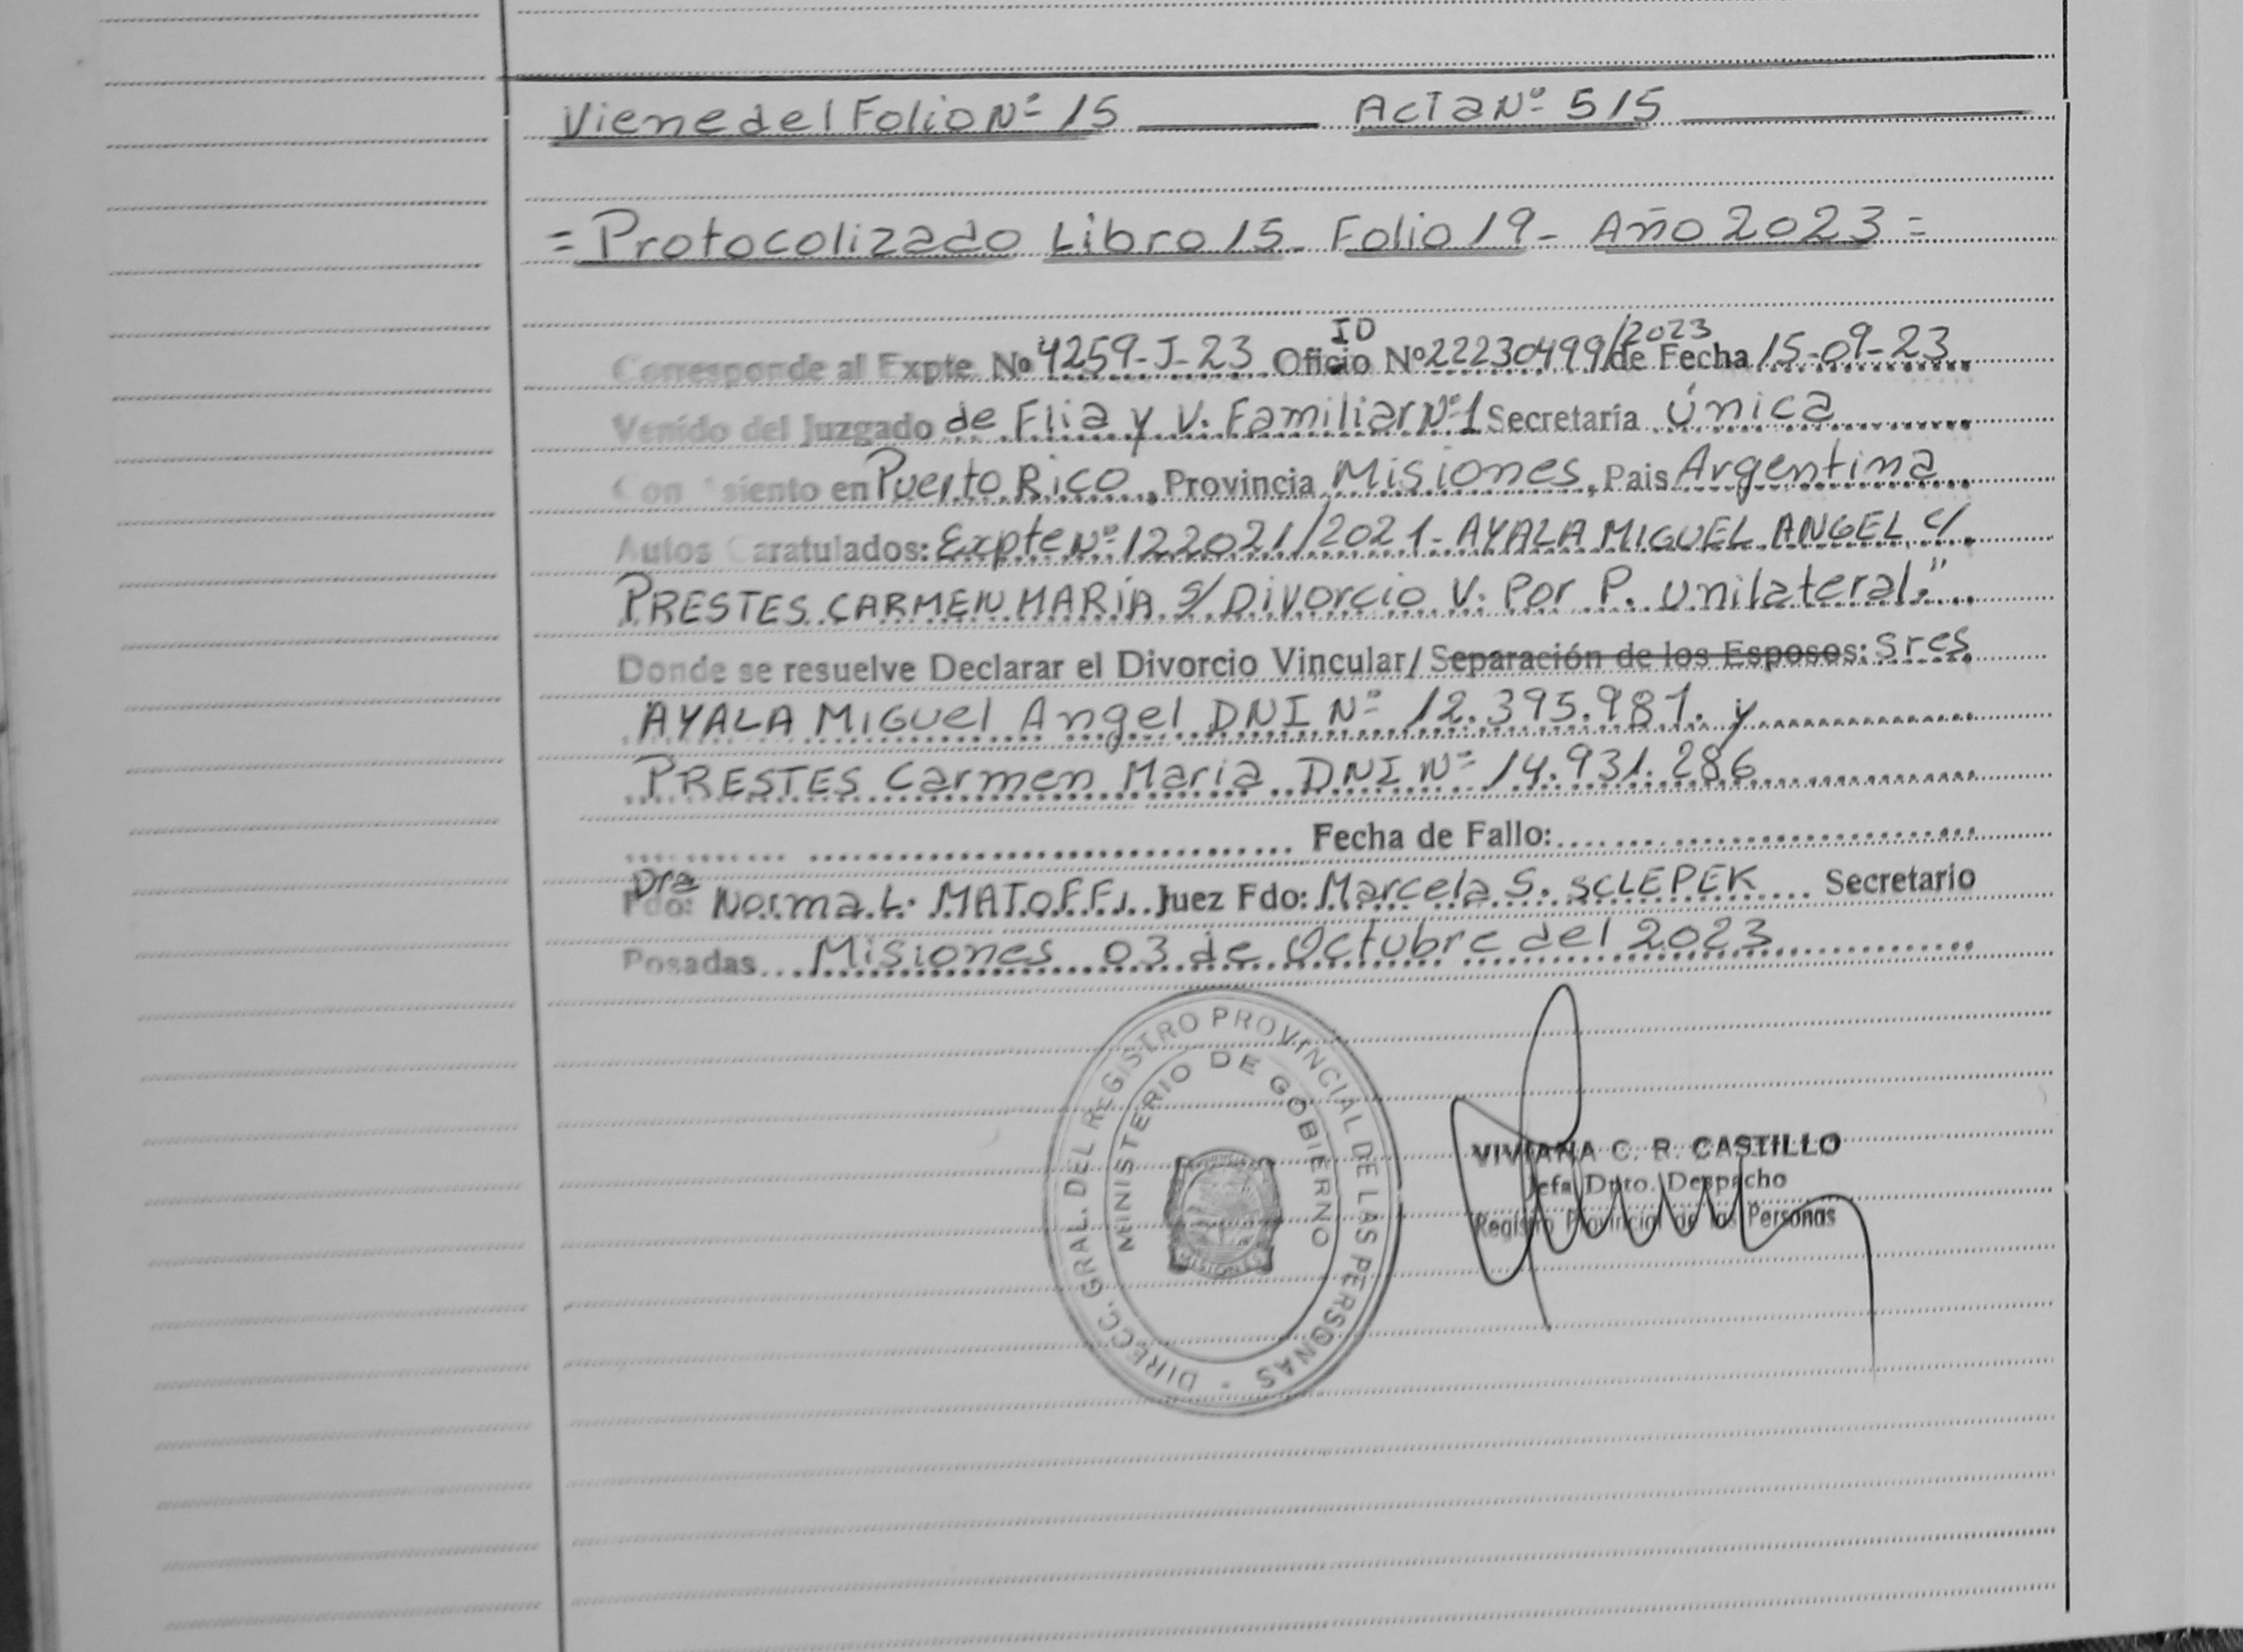 Viene del Folio Nº 15 Acta Nº 515
= Protocolizado Libro 15 - Folio 19 - Año 2023 =
ID /2023
Corresponde al Expte. Nº 4259-J-23 Oficio Nº 22230499 de Fecha 15-09-23
Venido del Juzgado de Flia y V. Familiar Nº 1 Secretaría Única
Con Asiento en Puerto Rico, Provincia Misiones, Pais Argentina
Autos Caratulados: Expte Nº 122021/2021 - AYALA MIGUEL ANGEL c/
PRESTES CARMEN MARÍA S/ Divorcio V. Por P. unilateral."
Donde se resuelve Declarar el Divorcio Vincular/ Separación de los Esposos: Sres
AYALA Miguel Angel DNI Nº 12.395.981. y
PRESTES Carmen Maria DNI Nº 14.931.286
Fecha de Fallo:
Dra
Fdo: Norma L. MATOFFI Juez Fdo: Marcela S. SCLEPEK Secretario
Posadas Misiones 03 de Octubre del 2023
DIRECC. GRAL. DEL REGISTRO PROVINCIAL DE LAS PERSONAS
MINISTERIO DE GOBIERNO
MISIONES
VIVIANA C. R. CASTILLO
Jefa Dpto. Despacho
Registro Provincial de las Personas